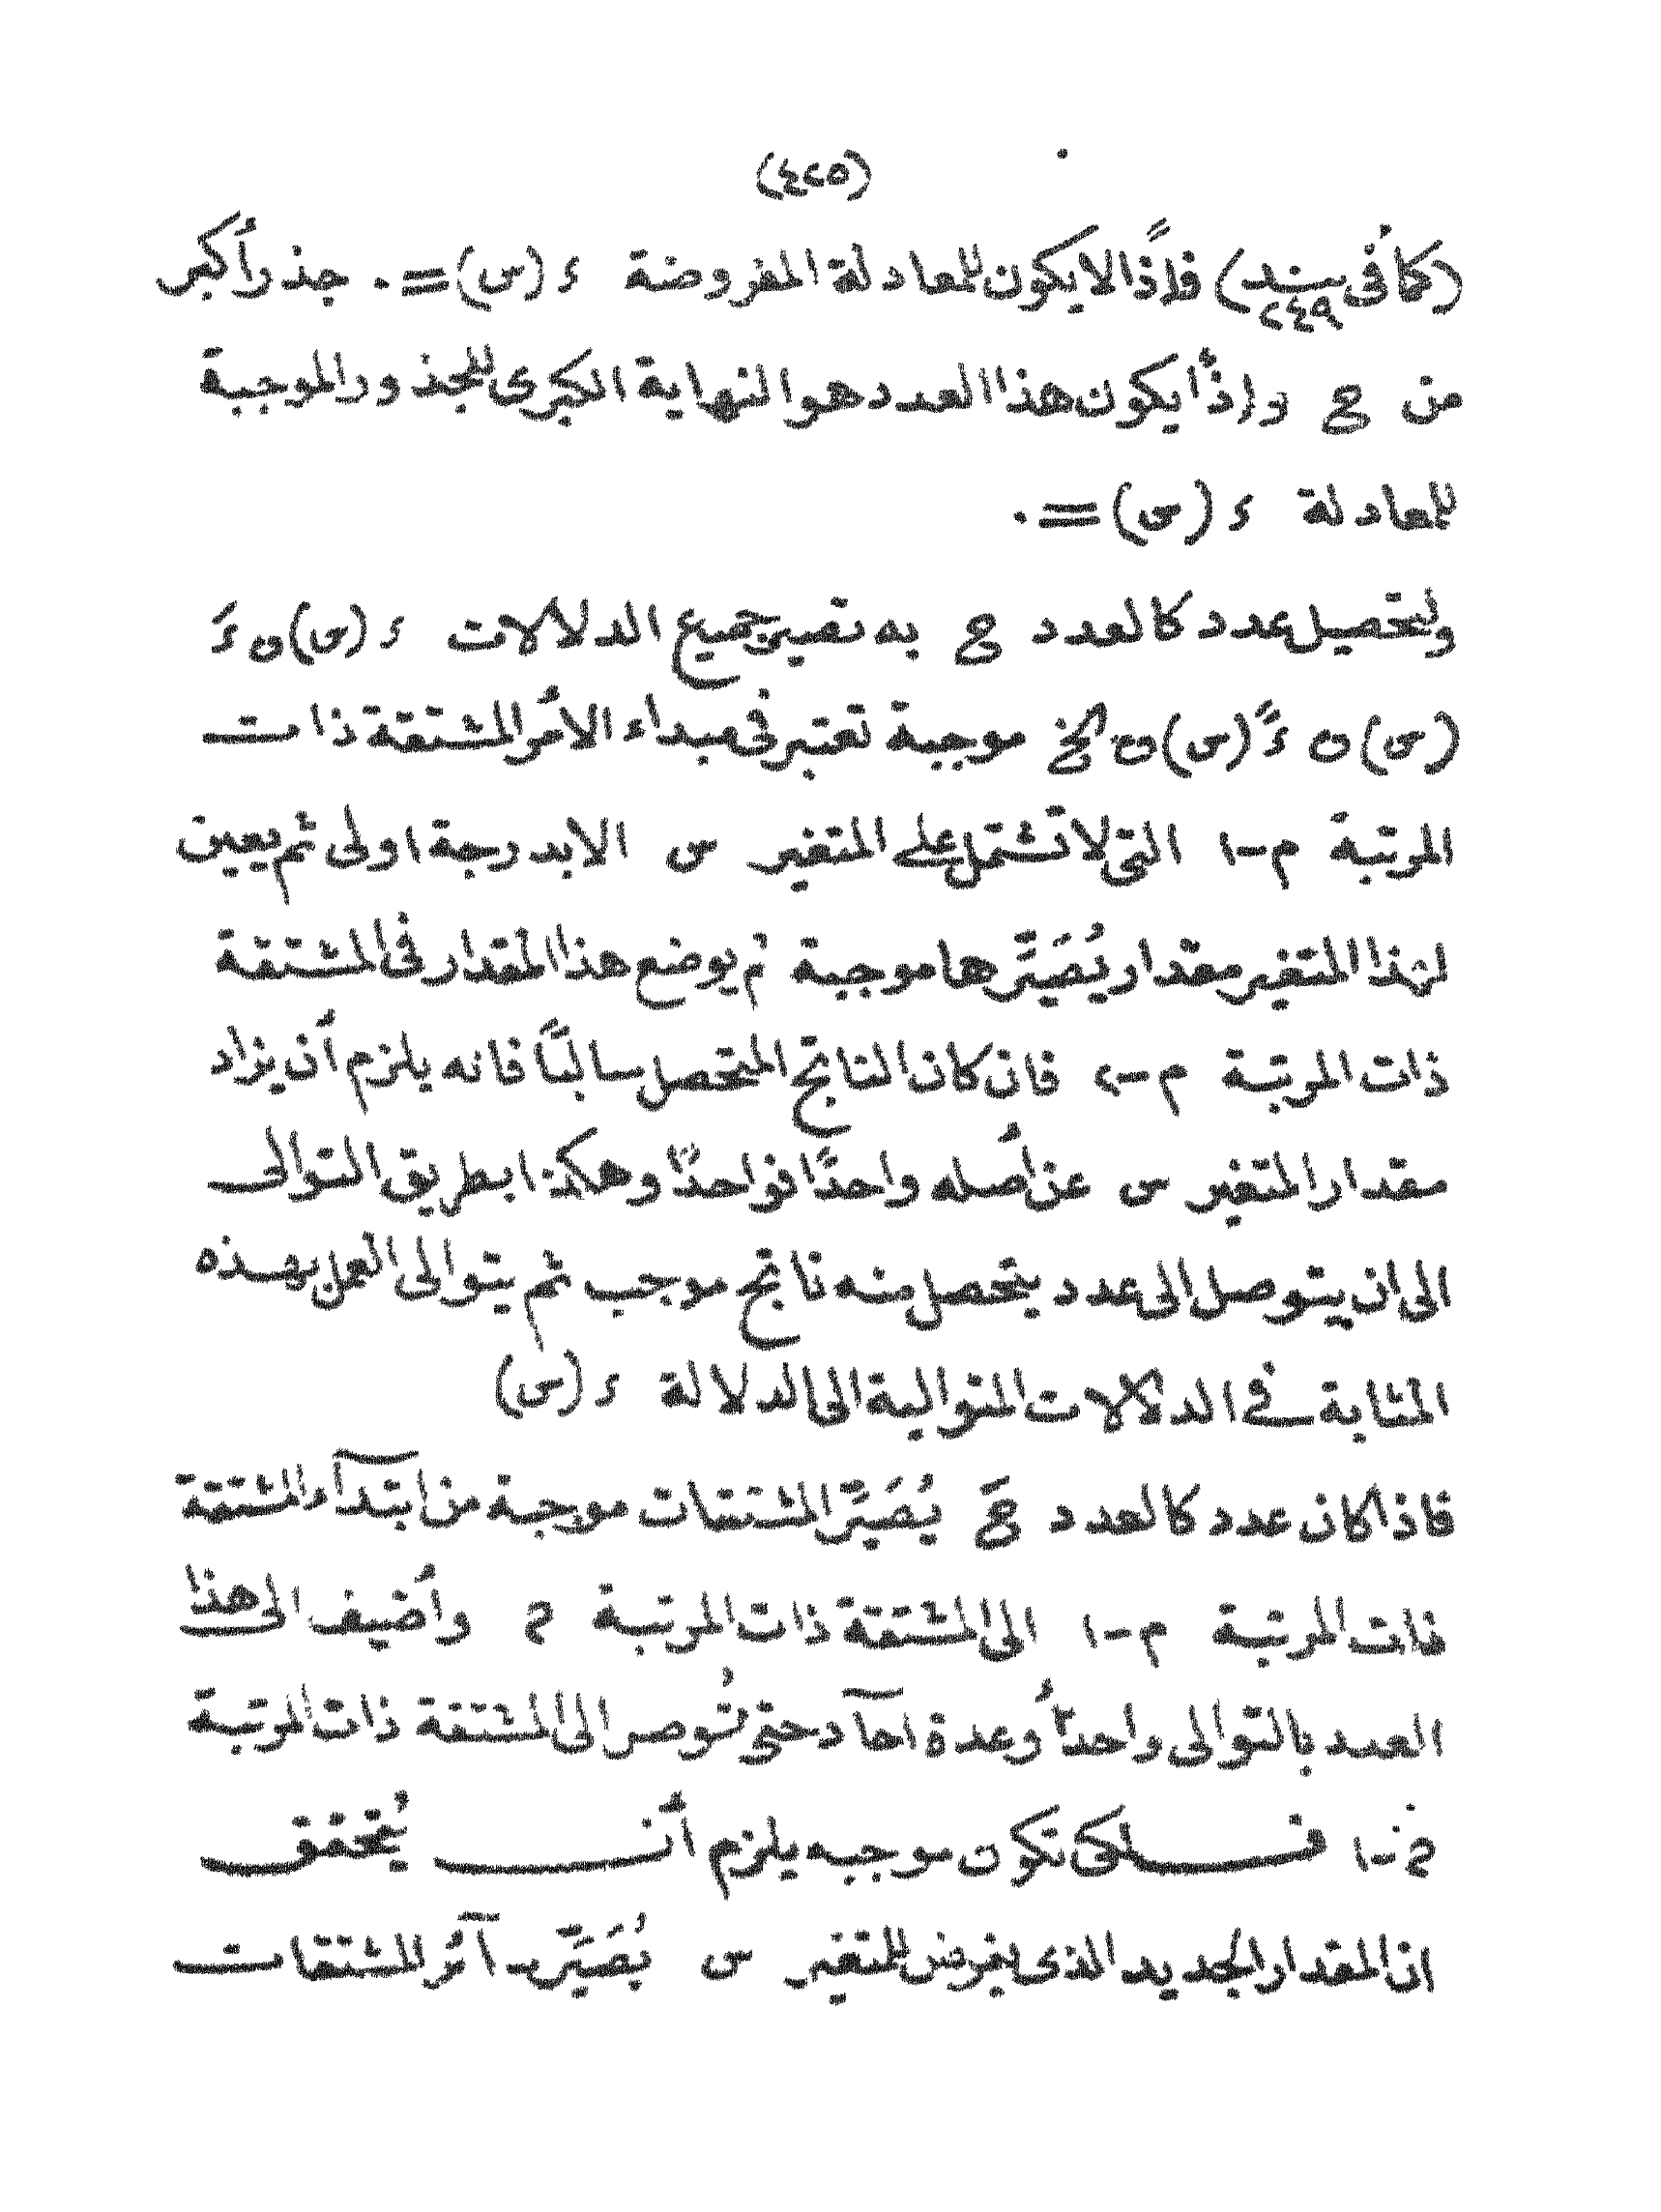 (٤٢٥)
(كما فى بند ٢٤٩) فإذا لا يكون للمعادلة المفروضة د (س) = ٠ جذر أكبر
من ح وإذاً يكون هذا العدد هو النهاية الكبرى للجذور الموجبة
للمعادلة د (س) = ٠
ولتحصيل عدد كالعدد ح به تصير جميع الدلالات د (س) ن دَ
(س) ن دً (س) ن الخ موجبة تعتبر فى مبداء الأمر المشتقة ذات
المرتبة م-١ التى لا تشتمل على المتغير س الا بدرجة اولى ثم يعين
لهذا المتغير مقدار يُصَيِّرها موجبة ثم يوضع هذا المقدار فى المشتقة
ذات المرتبة م-٢ فان كان الناتج المتحصل سالباً فانه يلزم أن يزاد
مقدار المتغير س عن أصله واحدًا فواحدًا وهكذا بطريق التوالى
الى ان يتوصل الى عدد يتحصل منه ناتج موجب ثم يتوالى العمل بهذه
المثابة فى الدلالات المتوالية الى الدلالة د (س)
فاذا كان عدد كالعدد حَ يُصَيِّر المشتقات موجبة من ابتدآء المشتقة
ذات المرتبة م-١ الى المشتقة ذات المرتبة م وأضيف الى هذا
العدد بالتوالى واحدٌ أو عدة احآد حتى تُوصر الى المشتقة ذات المرتبة
م-١ فلكى تكون موجبه يلزم أن يُتحقق
ان المقدار الجديد الذى يفرض للمتغير س يُصَيِّر سآئر المشتقات